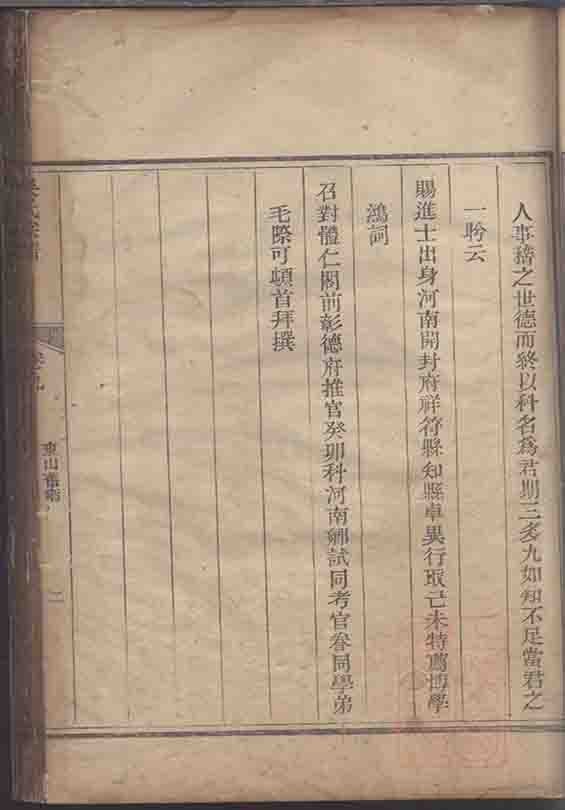 人事稽之世德而終以科名爲君期三多九如知不足當君之
一盼云
賜進士出身河南開封府祥符縣知縣卓異行取己未特薦博學
鴻詞
召對體仁閣前彰德府推官癸卯科河南鄉試同考官眷同學弟
毛際可頓首拜撰
東山
二